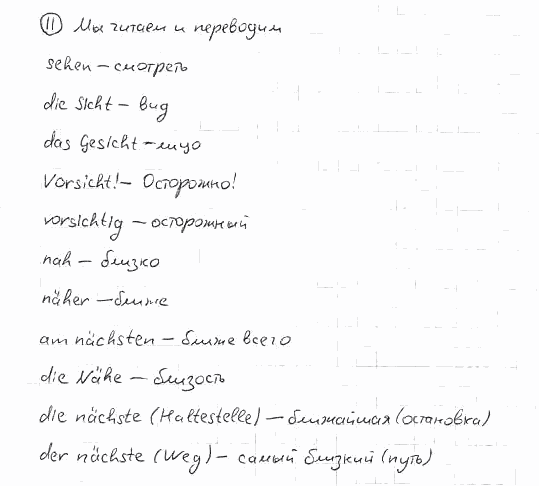 ⑪ Мы читаем и переводим
sehen – смотреть
die Sicht – вид
das Gesicht – лицо
Vorsicht! – Осторожно!
vorsichtig – осторожный
nah – близко
näher – ближе
am nächsten – ближе всего
die Nähe – близость
die nächste (Haltestelle) – ближайшая (остановка)
der nächste (Weg) – самый близкий (путь)